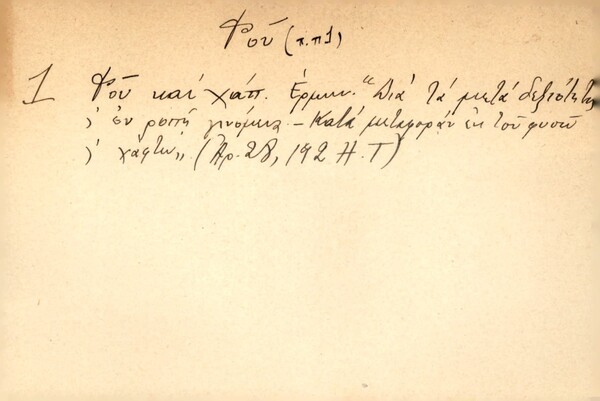 Φού (π.π1)
1 Φού και χάπ. Ερμην. "Διά τά μετά δεξιότητος
έν ροπή γινόμενα - Κατά μεταφοράν εκ τού φυσώ
χάφτω" (Αρ. 28, 192 Η.Τ)